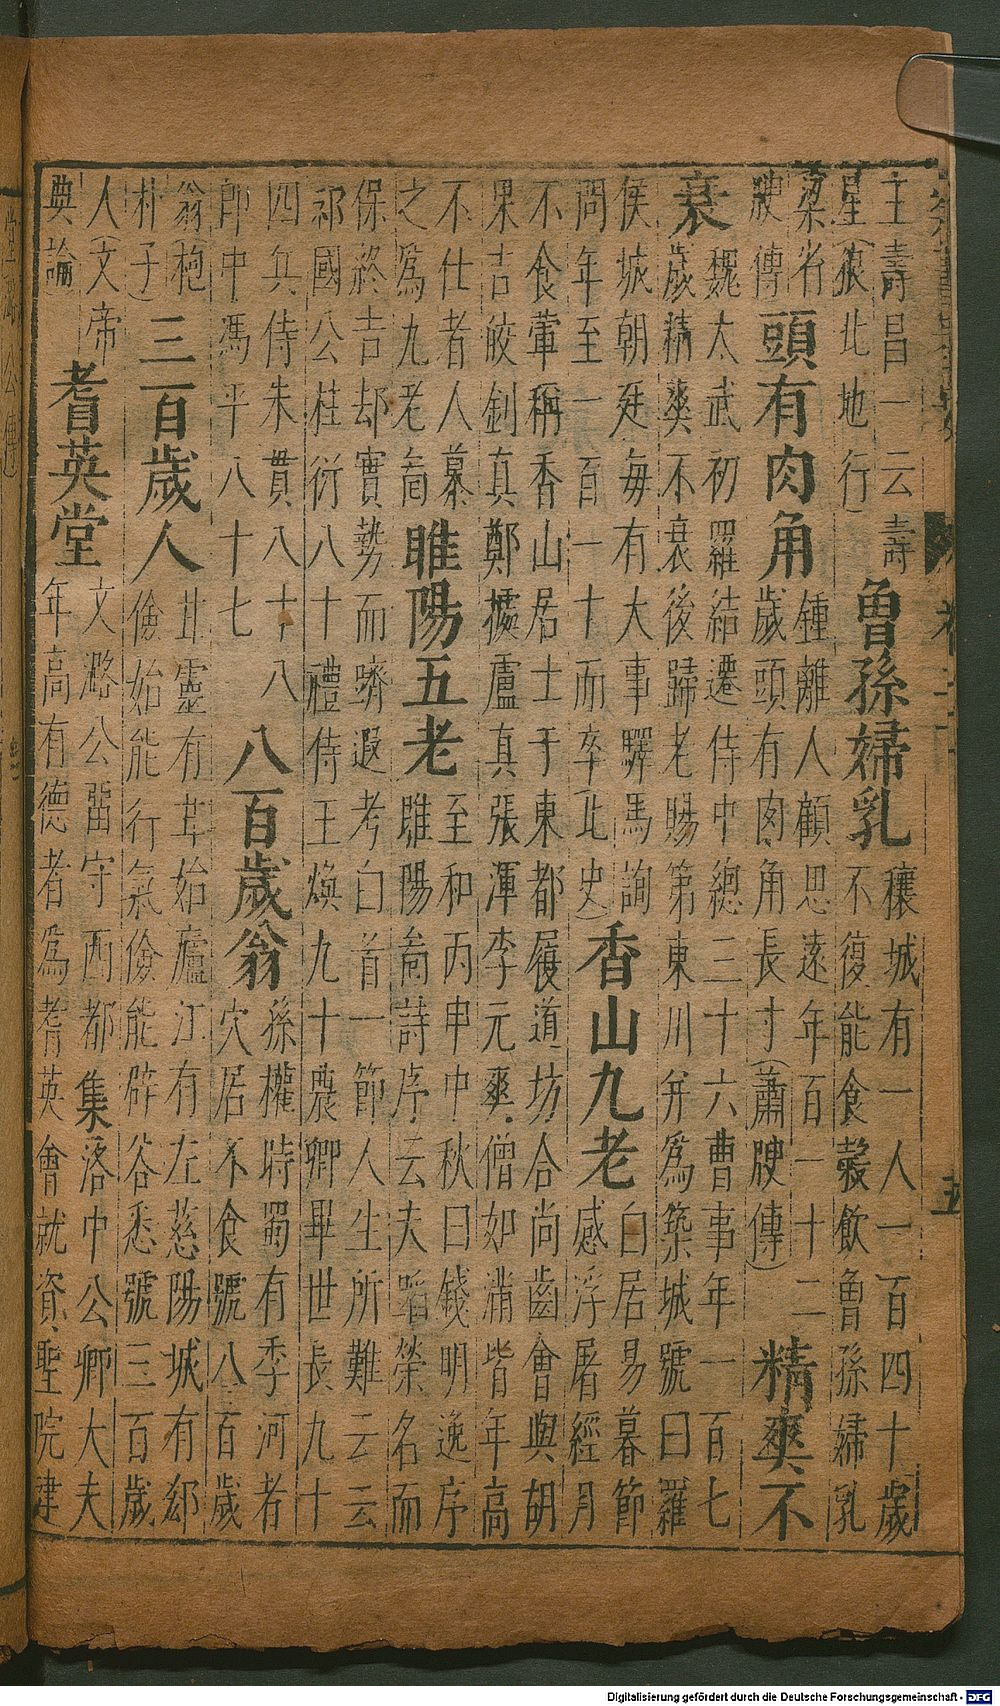 主壽昌一云壽
星(狼北地行)
魯孫婦乳
穰城有一人一百四十歲
不復能食穀飲魯孫婦乳
梁省
腴傳
頭有肉角
鍾離人顧思遠年百一十二
歲頭有肉角長寸(蕭腴傳)
精爽不
衰
魏太武初羅結遷侍中總三十六曹事年一百七
歲精爽不衰後歸老賜第東川并爲築城號曰羅
侯城朝廷毎有大事驛馬詢
問年至一百一十而卒(北史)
香山九老
白居易暮節
感浮屠經月
不食葷稱香山居士于東都履道坊合尚齒會與胡
果吉皎釗真鄭據盧真張渾李元爽僧如滿皆年高
不仕者人慕
之爲九老啚
睢陽五老
至和丙申中秋日錢明逸序
睢陽啚詩序云夫蹈榮名而
保終吉却實勢而躋遐考白首一節人生所難云云
祁國公桂衍八十禮侍王煥九十農卿畢世長九十
四兵侍朱貫八十八
郎中馮平八十七
八百歲翁
孫權時蜀有李河者
穴居不食號八百歲
翁枹
朴子)
三百歲人
甘靈有甘始廬江有左慈陽城有郄
儉始能行氣儉能辟谷悉號三百歲
人(文帝
典論)
耆英堂
文潞公畱守西都集洛中公卿大夫
年高有德者爲耆英會就資聖院建
五
Digitalisierung gefördert durch die Deutsche Forschungsgemeinschaft - DFG